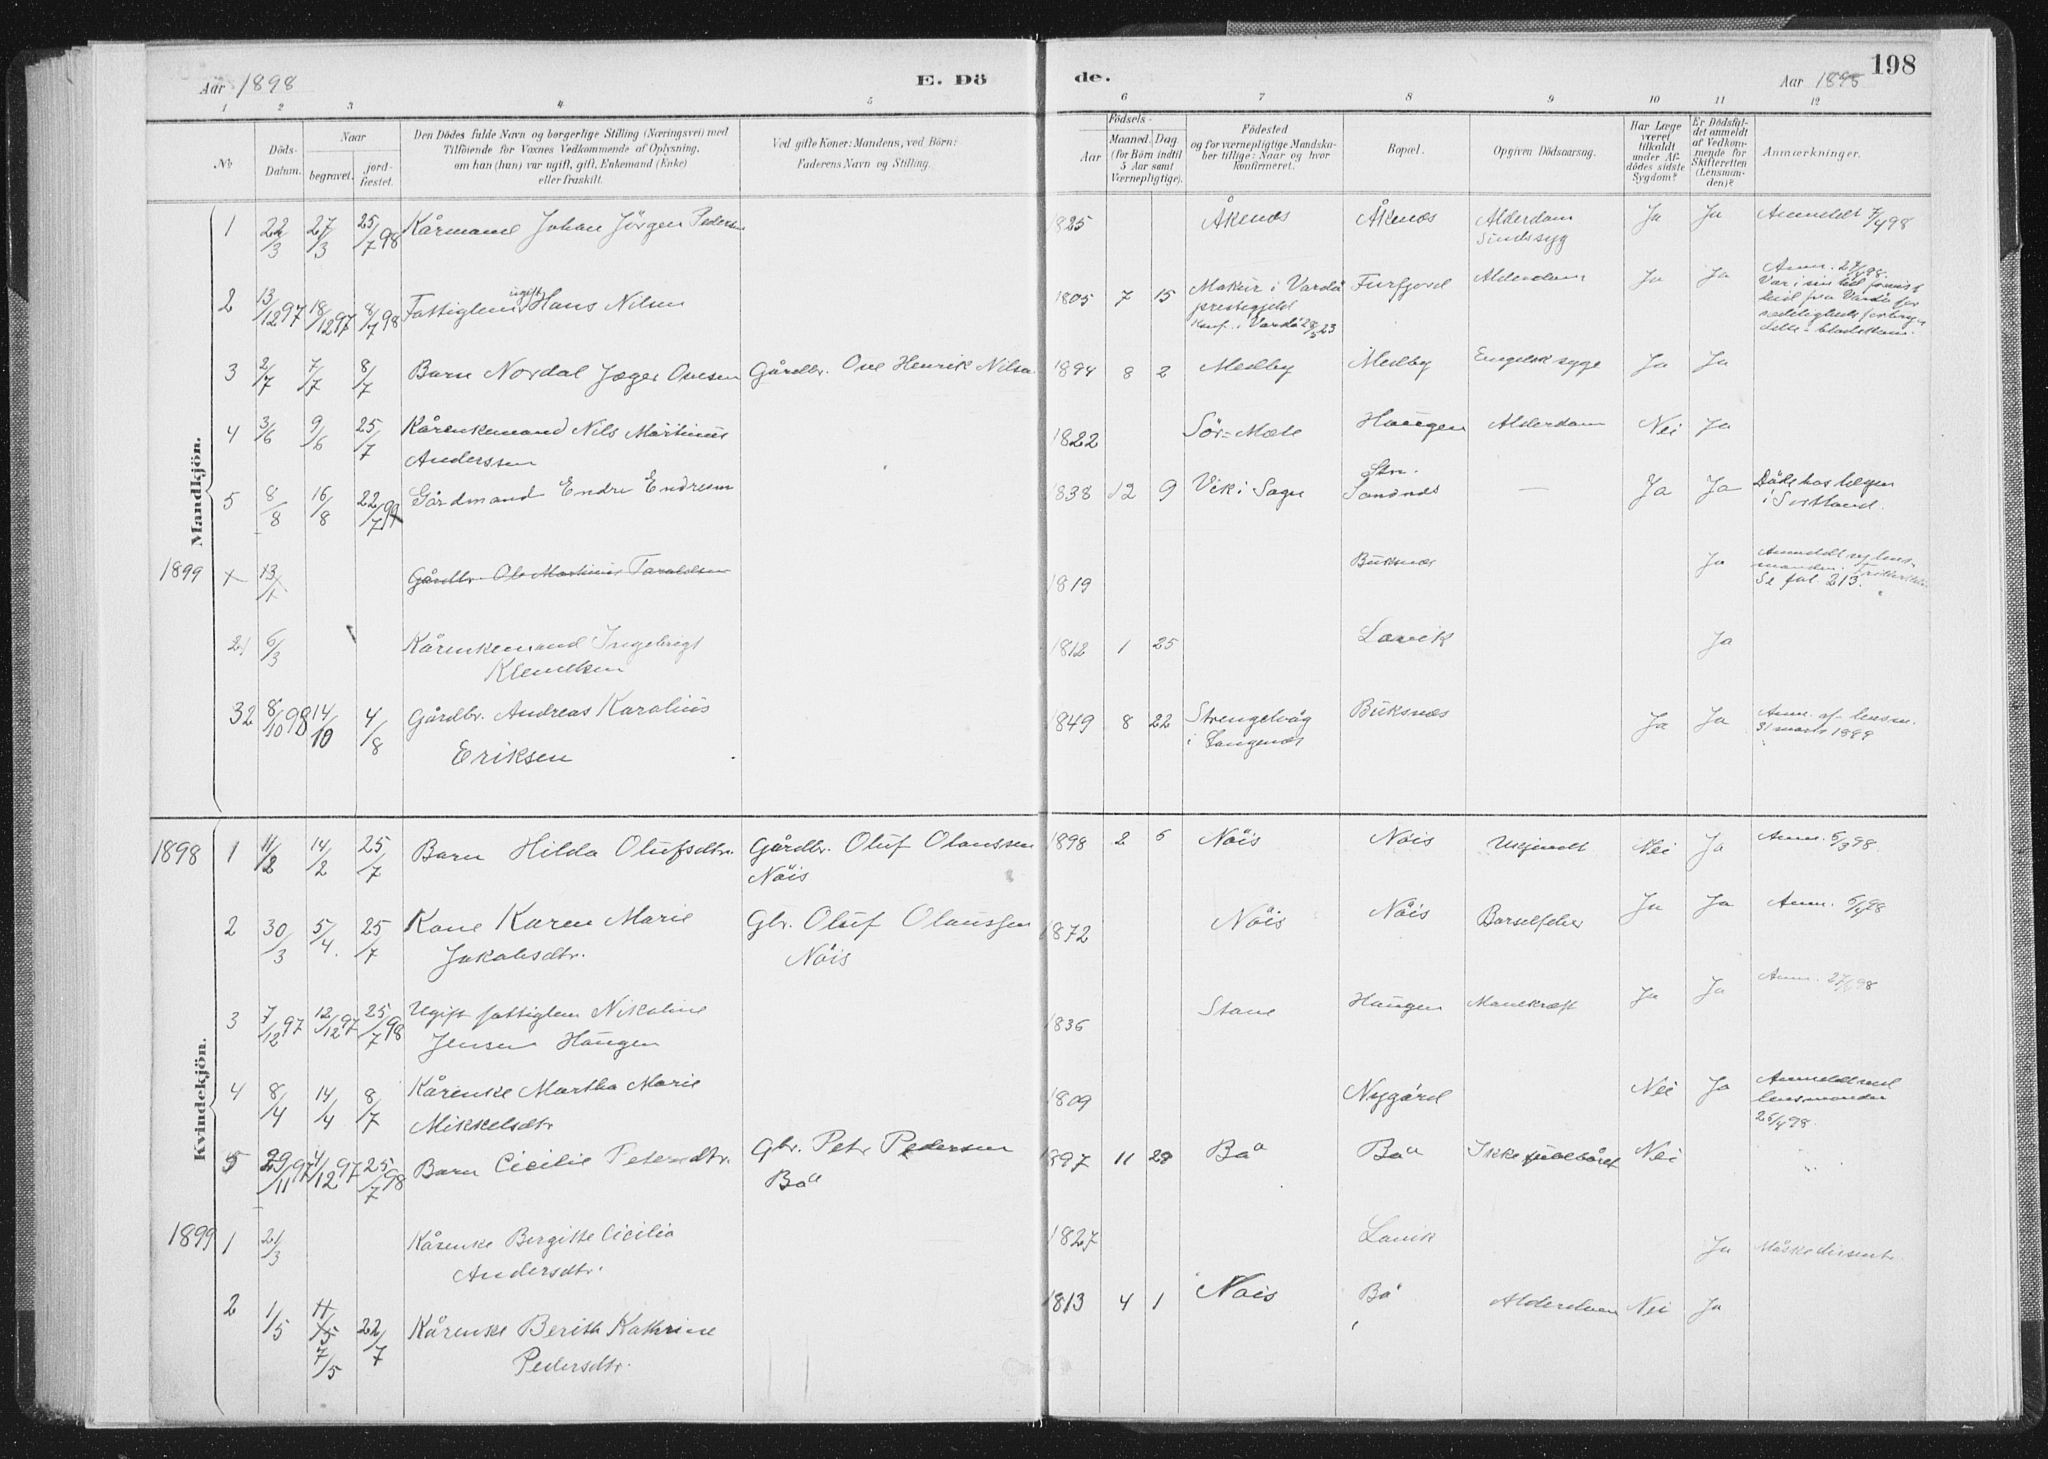 Aar 1898
E. Dö
de.
Aar 1895
198
1 2 3 4 5 6 7 8 9 10 11 12
No
Döds-Datum.
Naar
begravet.
jordfæstet.
Den Dödes fulde Navn og borgerlige Stilling (Næringsvei) med
Tilföiende for Voxnes Vedkommende af Oplysning,
om han (hun) var ugift, gift, Enkemand (Enke)
eller fraskilt.
Ved gifte Koner: Mandens, ved Börn:
Faderens Navn og Stilling.
Födsels-
Aar
Maaned.
Dag
(for Börn indtil
5 Aar samt
Værnepligtige).
Födested
og for værnepligtige Mandskaber
tillige: Naar og hvor
konfirmeret.
Bopæl.
Opgiven Dödsaarsag.
Har Læge
været
tilkaldt
under Afdödes
sidste
Sygdom?
Er Dödsfaldet
anmeldt
af Vedkommende
for
Skifteretten
(Lensmanden)?
Anmærkninger.
Mandkjön.
1 22/3 27/3 25/7 98 Kårmand Johan Jörgen Pedersen 1825 Åkenæs Åkenæs Alderdom Sindssyg Ja Ja Anmeldt 7/4 98
2 13/12 97 18/12 97 8/7 98 Fattiglem ugift Hans Nilsen 1805 7 15 Makur i Vardö prestegjeld Konf. i Vardö 23 Furfjord Alderdom Ja Ja Anm. 98. Var i sin tid
3 2/7 7/7 8/7 Barn Nordal Jæger Ovesen Gårdbr. Ove Henrik Nilsen 1894 8 2 Medby Medby Engelsk syge Ja Ja
4 3/6 9/6 25/7 Kårenkemand Nils Martinus
Anderssen 1822 Sör-Mele Haugen Alderdom Nei Ja
5 8/8 16/8 22/7 99 Gårdmand Endre Endresen 1838 12 9 Vik i Sogn Str. Sandnes — Ja Ja Döde hos lægen
i Sortland.
1899 + 13/ Gårdbr. Ole Martinus Taraldsen 1819 Buksnæs Ja Anmeldt lensmanden. Se fol. 213.
2 6/3 Kårenkemand Ingebrigt
Klemetsen 1812 1 25 Lovik Ja
32 8/10 98 14/10 4/8 Gårdbr. Andreas Karolius
Eriksen 1849 8 22 Strengelvåg
i Langenes Buksnæs Ja Ja Anm. af lensm.
31 marts 1899
Kvindekjön.
1898 1 11/2 14/2 25/7 Barn Hilda Olufsdtr. Gårdbr. Oluf Olaussen
Nöis 1898 2 5 Nöis Nöis Ukjendt Nei Ja Anm. 5/3 98.
2 30/3 5/4. 25/7 Kone Karen Marie
Jakobsdtr. Gbr. Oluf Olaussen
Nöis 1872 Nöis Nöis Barselfeber Ja Ja Anm. 5/4 98
3 7/12 97 12/12 97 25/7 98 Ugift fattiglem Nikoline
Jensen Haugen 1836 Stave Haugen Mavekræft Ja Ja Anm. 98
4 8/4 14/4 8/7 Kårenke Martha Marie
Mikkelsdtr 1809 Nygård Nei Ja Anmeldt ved
lensmanden
26/4 98.
5 29/11 97 4/12 97 25/7 98 Barn Cicilie Petersdtr. Gbr. Peter Pedersen
Bö 1897 11 29 Bö Bö Ikke Nei
1899 1 21/3 Kårenke Bergitte Cicilia
Andersdtr. 1827 Lovik Ja Måske dissent
2 1/5 11/5 7/5 22/7 Kårenke Berith Kathrine
Pedersdtr. 1813 4 1 Nöis Bö Alderdom Nei Ja